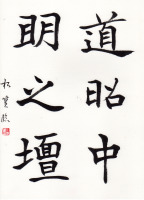 道昭中
明之壇